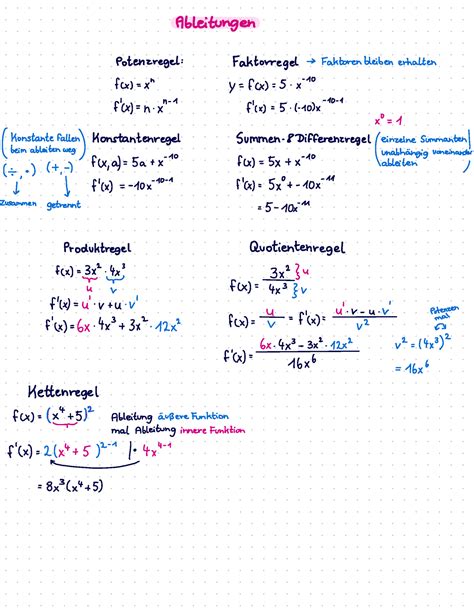 Ableitungen
Potenzregel:
f(x) = xⁿ
f'(x) = n · xⁿ⁻¹
Faktorregel → Faktoren bleiben erhalten
y = f(x) = 5 · x⁻¹⁰
f'(x) = 5 · (-10)x⁻¹⁰⁻¹
(Konstante fallen
beim ableiten weg)
(÷, ·) (+, -)
Zusammen getrennt
Konstantenregel
f(x, a) = 5a + x⁻¹⁰
f'(x) = -10x⁻¹⁰⁻¹
x⁰ = 1
Summen- & Differenzregel
(einzelne Summanten
unabhängig voneinander
ableiten)
f(x) = 5x + x⁻¹⁰
f'(x) = 5x⁰ + -10x⁻¹¹
= 5 - 10x⁻¹¹
Produktregel
f(x) = 3x² · 4x³
u v
f'(x) = u' · v + u · v'
f'(x) = 6x · 4x³ + 3x² · 12x²
Quotientenregel
f(x) = 3x² / 4x³ } u } v
f(x) = u / v = f'(x) = u' · v - u · v' / v²
f'(x) = 6x · 4x³ - 3x² · 12x² / 16x⁶
Potenzen
mal
v² = (4x³)²
= 16x⁶
Kettenregel
f(x) = (x⁴ + 5)²
f'(x) = 2(x⁴ + 5)²⁻¹ | · 4x⁴⁻¹
Ableitung äußere Funktion
mal Ableitung innere Funktion
= 8x³(x⁴ + 5)